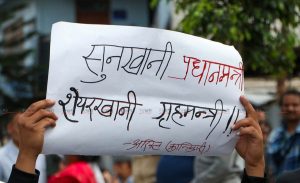 सुनखानी प्रधानमन्त्री
शेयरखानी गृहमन्त्री !!